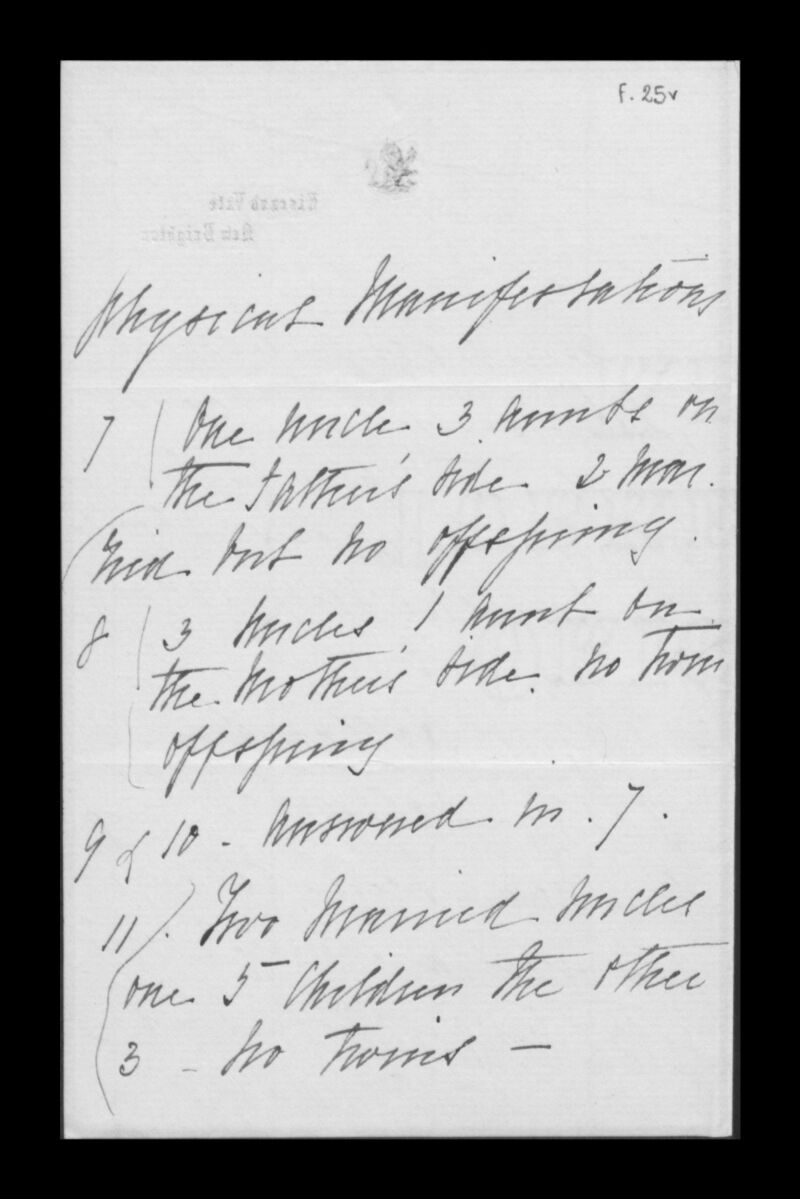 f. 25v
Physical Manifestations
7 ( One uncle 3 aunts on
the Father's side 2 Mar.
ried but no offspring.
8 ( 3 uncles 1 aunt on
the Mother's side. No twin
offspring
9 & 10 - answered in. 7.
11). Two Married uncles
one 5 Children the other
3 - No twins -